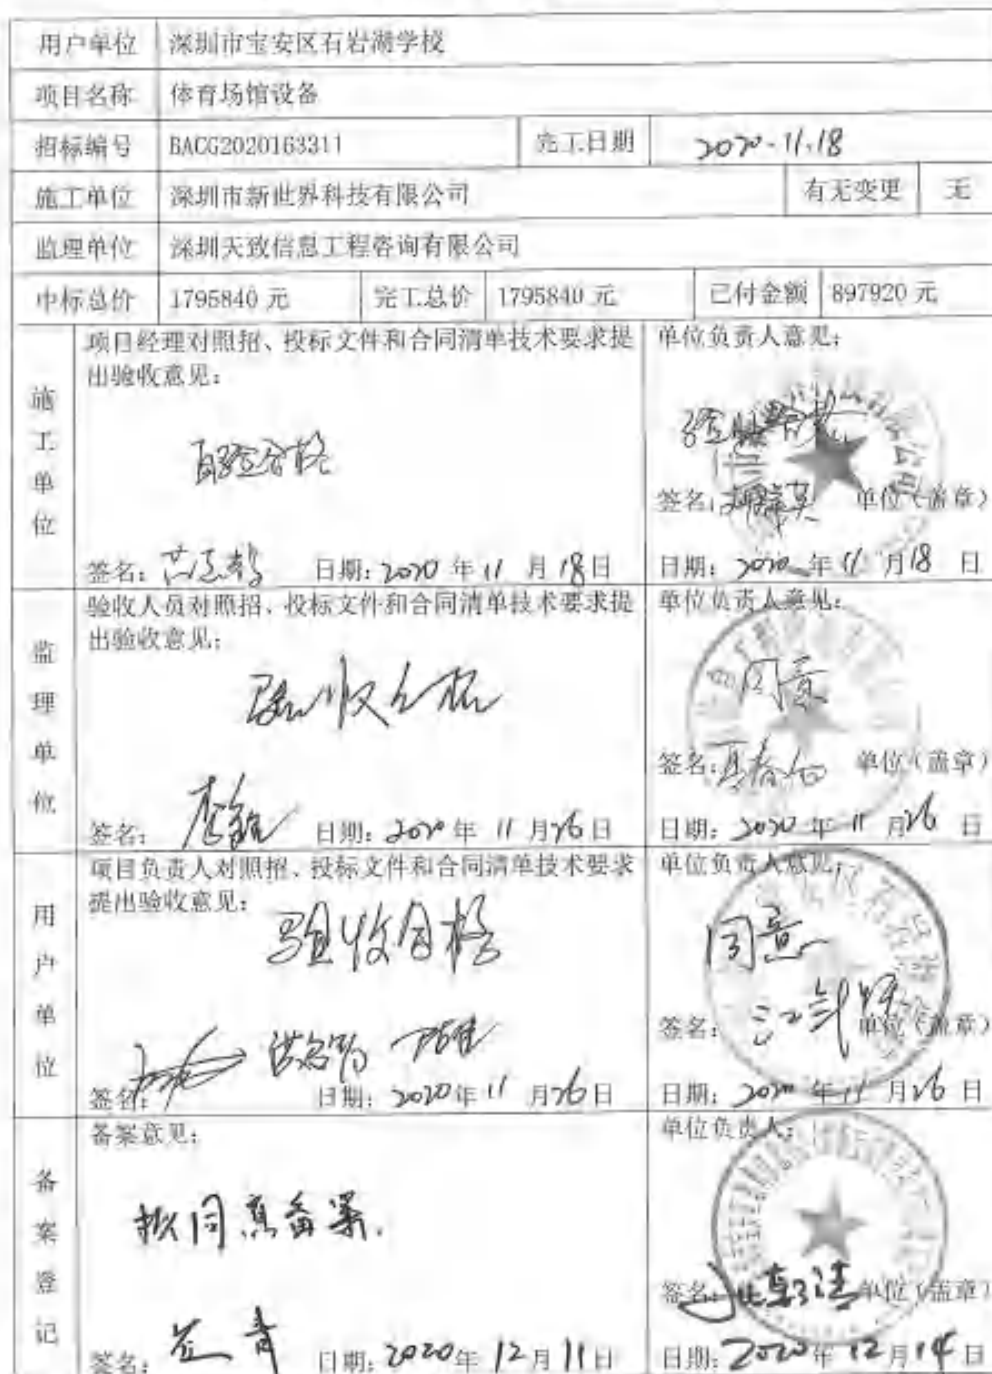 用户单位 深圳市宝安区石岩湖学校
项目名称 体育场馆设备
招标编号 BACG2020163311 完工日期 2020.11.18
施工单位 深圳市新世界科技有限公司 有无变更 无
监理单位 深圳天致信息工程咨询有限公司
中标总价 1795840 元 完工总价 1795840 元 已付金额 897920 元
施工单位
项目经理对照招、投标文件和合同清单技术要求提
出验收意见:
自验合格
签名: 日期: 2020 年 11 月 18 日
单位负责人意见:
验收合格
签名: 单位(盖章)
日期: 2020 年 11 月 18 日
监理单位
验收人员对照招、投标文件和合同清单技术要求提
出验收意见:
验收合格
签名: 日期: 2020 年 11 月 26 日
单位负责人意见:
同意
签名: 单位(盖章)
日期: 2020 年 11 月 26 日
用户单位
项目负责人对照招、投标文件和合同清单技术要求
提出验收意见:
验收合格
签名: 日期: 2020 年 11 月 26 日
单位负责人意见:
同意
签名: 单位(盖章)
日期: 2020 年 11 月 26 日
备案登记
备案意见:
拟同意备案.
签名: 日期: 2020 年 12 月 11 日
单位负责人:
签名: 单位(盖章)
日期: 2020 年 12 月 14 日